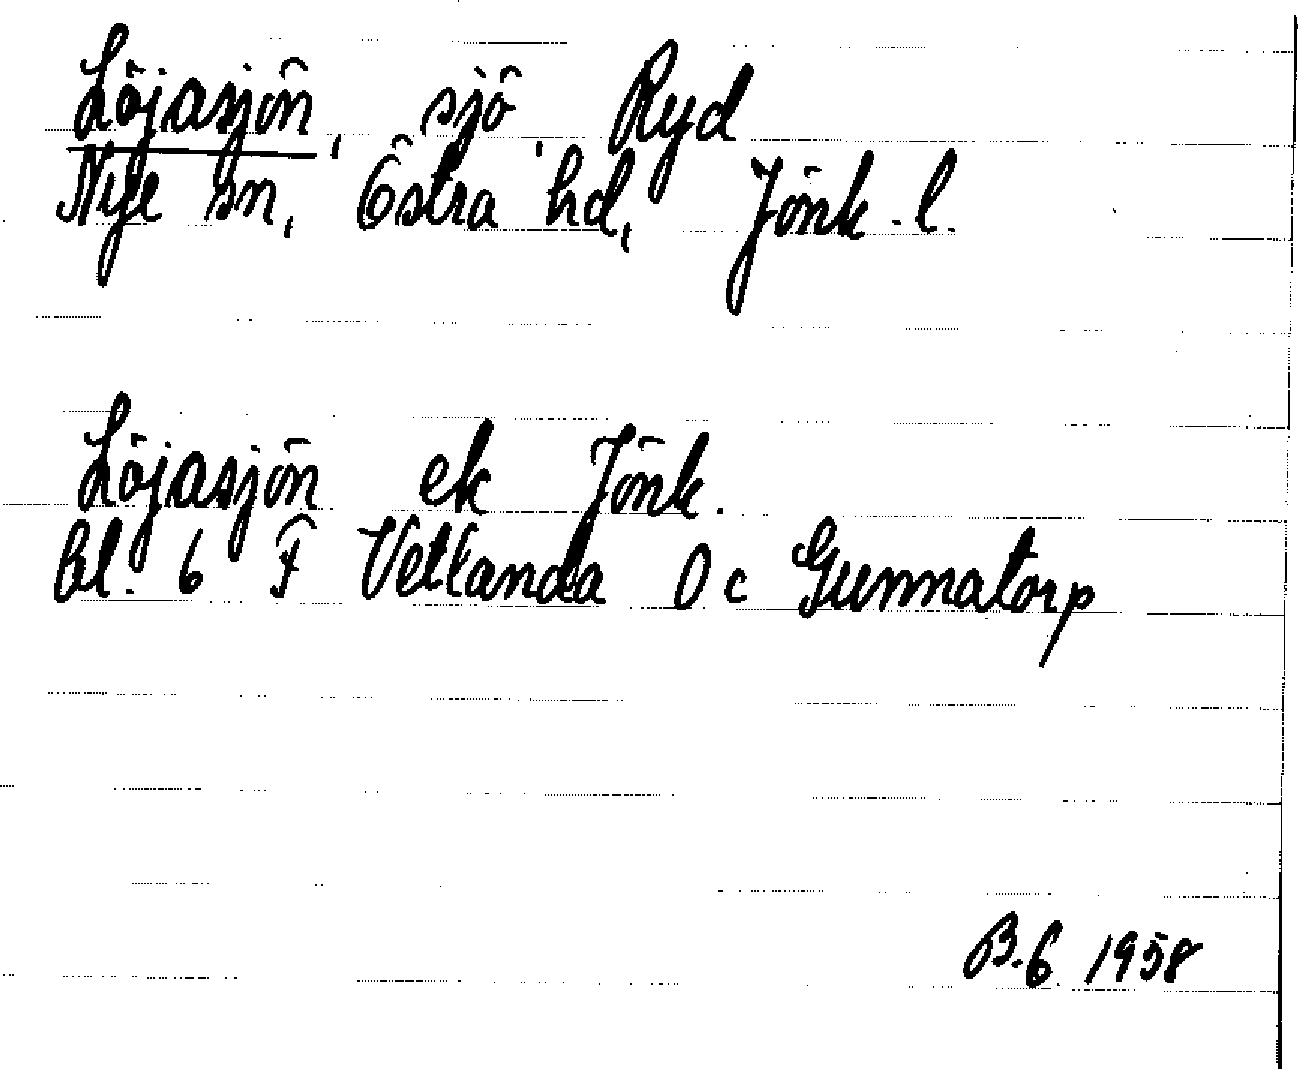 Löjasjön, sjö, Ryd
Nye sn, Östra hd, Jönk. l.
Löjasjön ek Jönk.
bl. 6 F Vetlanda 0 c Gunnatorp
B.G. 1958